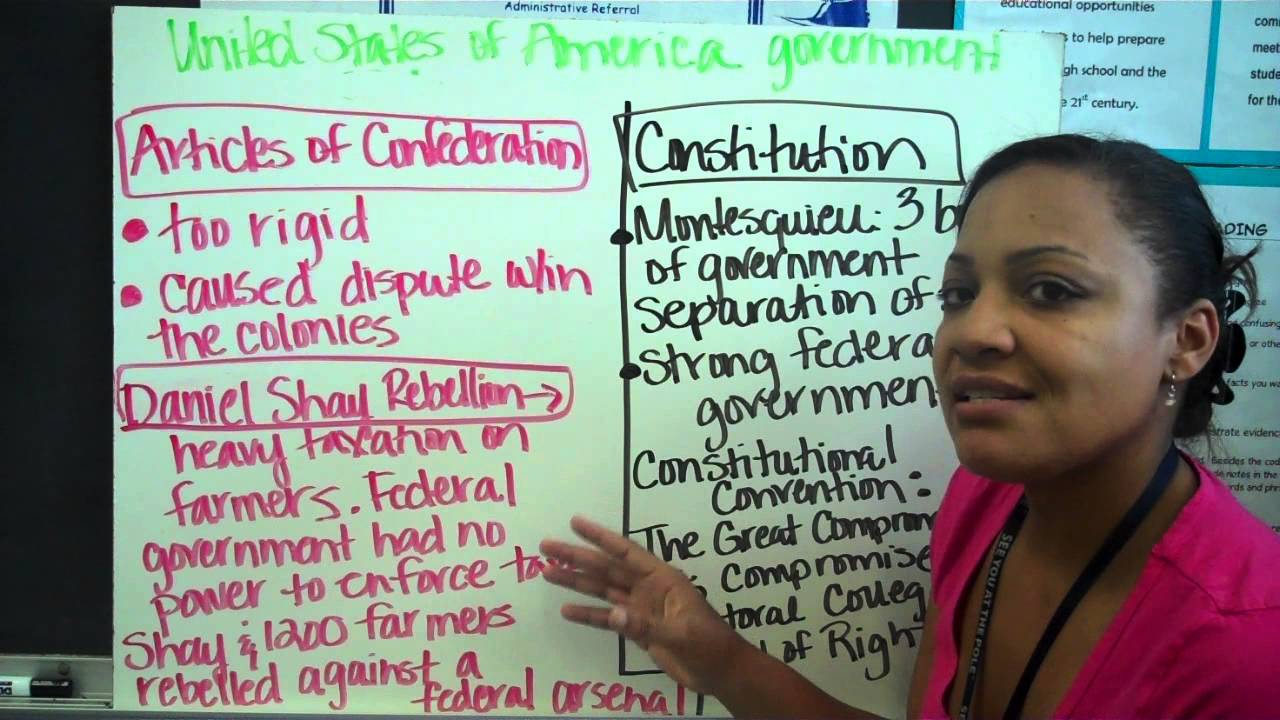 Administrative Referral
United States of America government
Articles of Confederation
• too rigid
• caused dispute w/in
the colonies
Daniel Shay Rebellion→
heavy taxation on
farmers. Federal
government had no
power to enforce
Shay & 1200 farmers
rebelled against a
federal arsenal
Constitution
• Montesquieu: 3
of government
separation of
• Strong federa
governmen
Constitutional
Convention:
The Great Compro
Compromise
toral Colleg
of Right
educational opportunities
to help prepare
gh school and the
21st century.
com
meet
stude
for the
DING
confusing
or othe
facts you wa
strate evidenc
Besides the cod
de notes in the
rds and phr
SEE YOU AT THE POLE